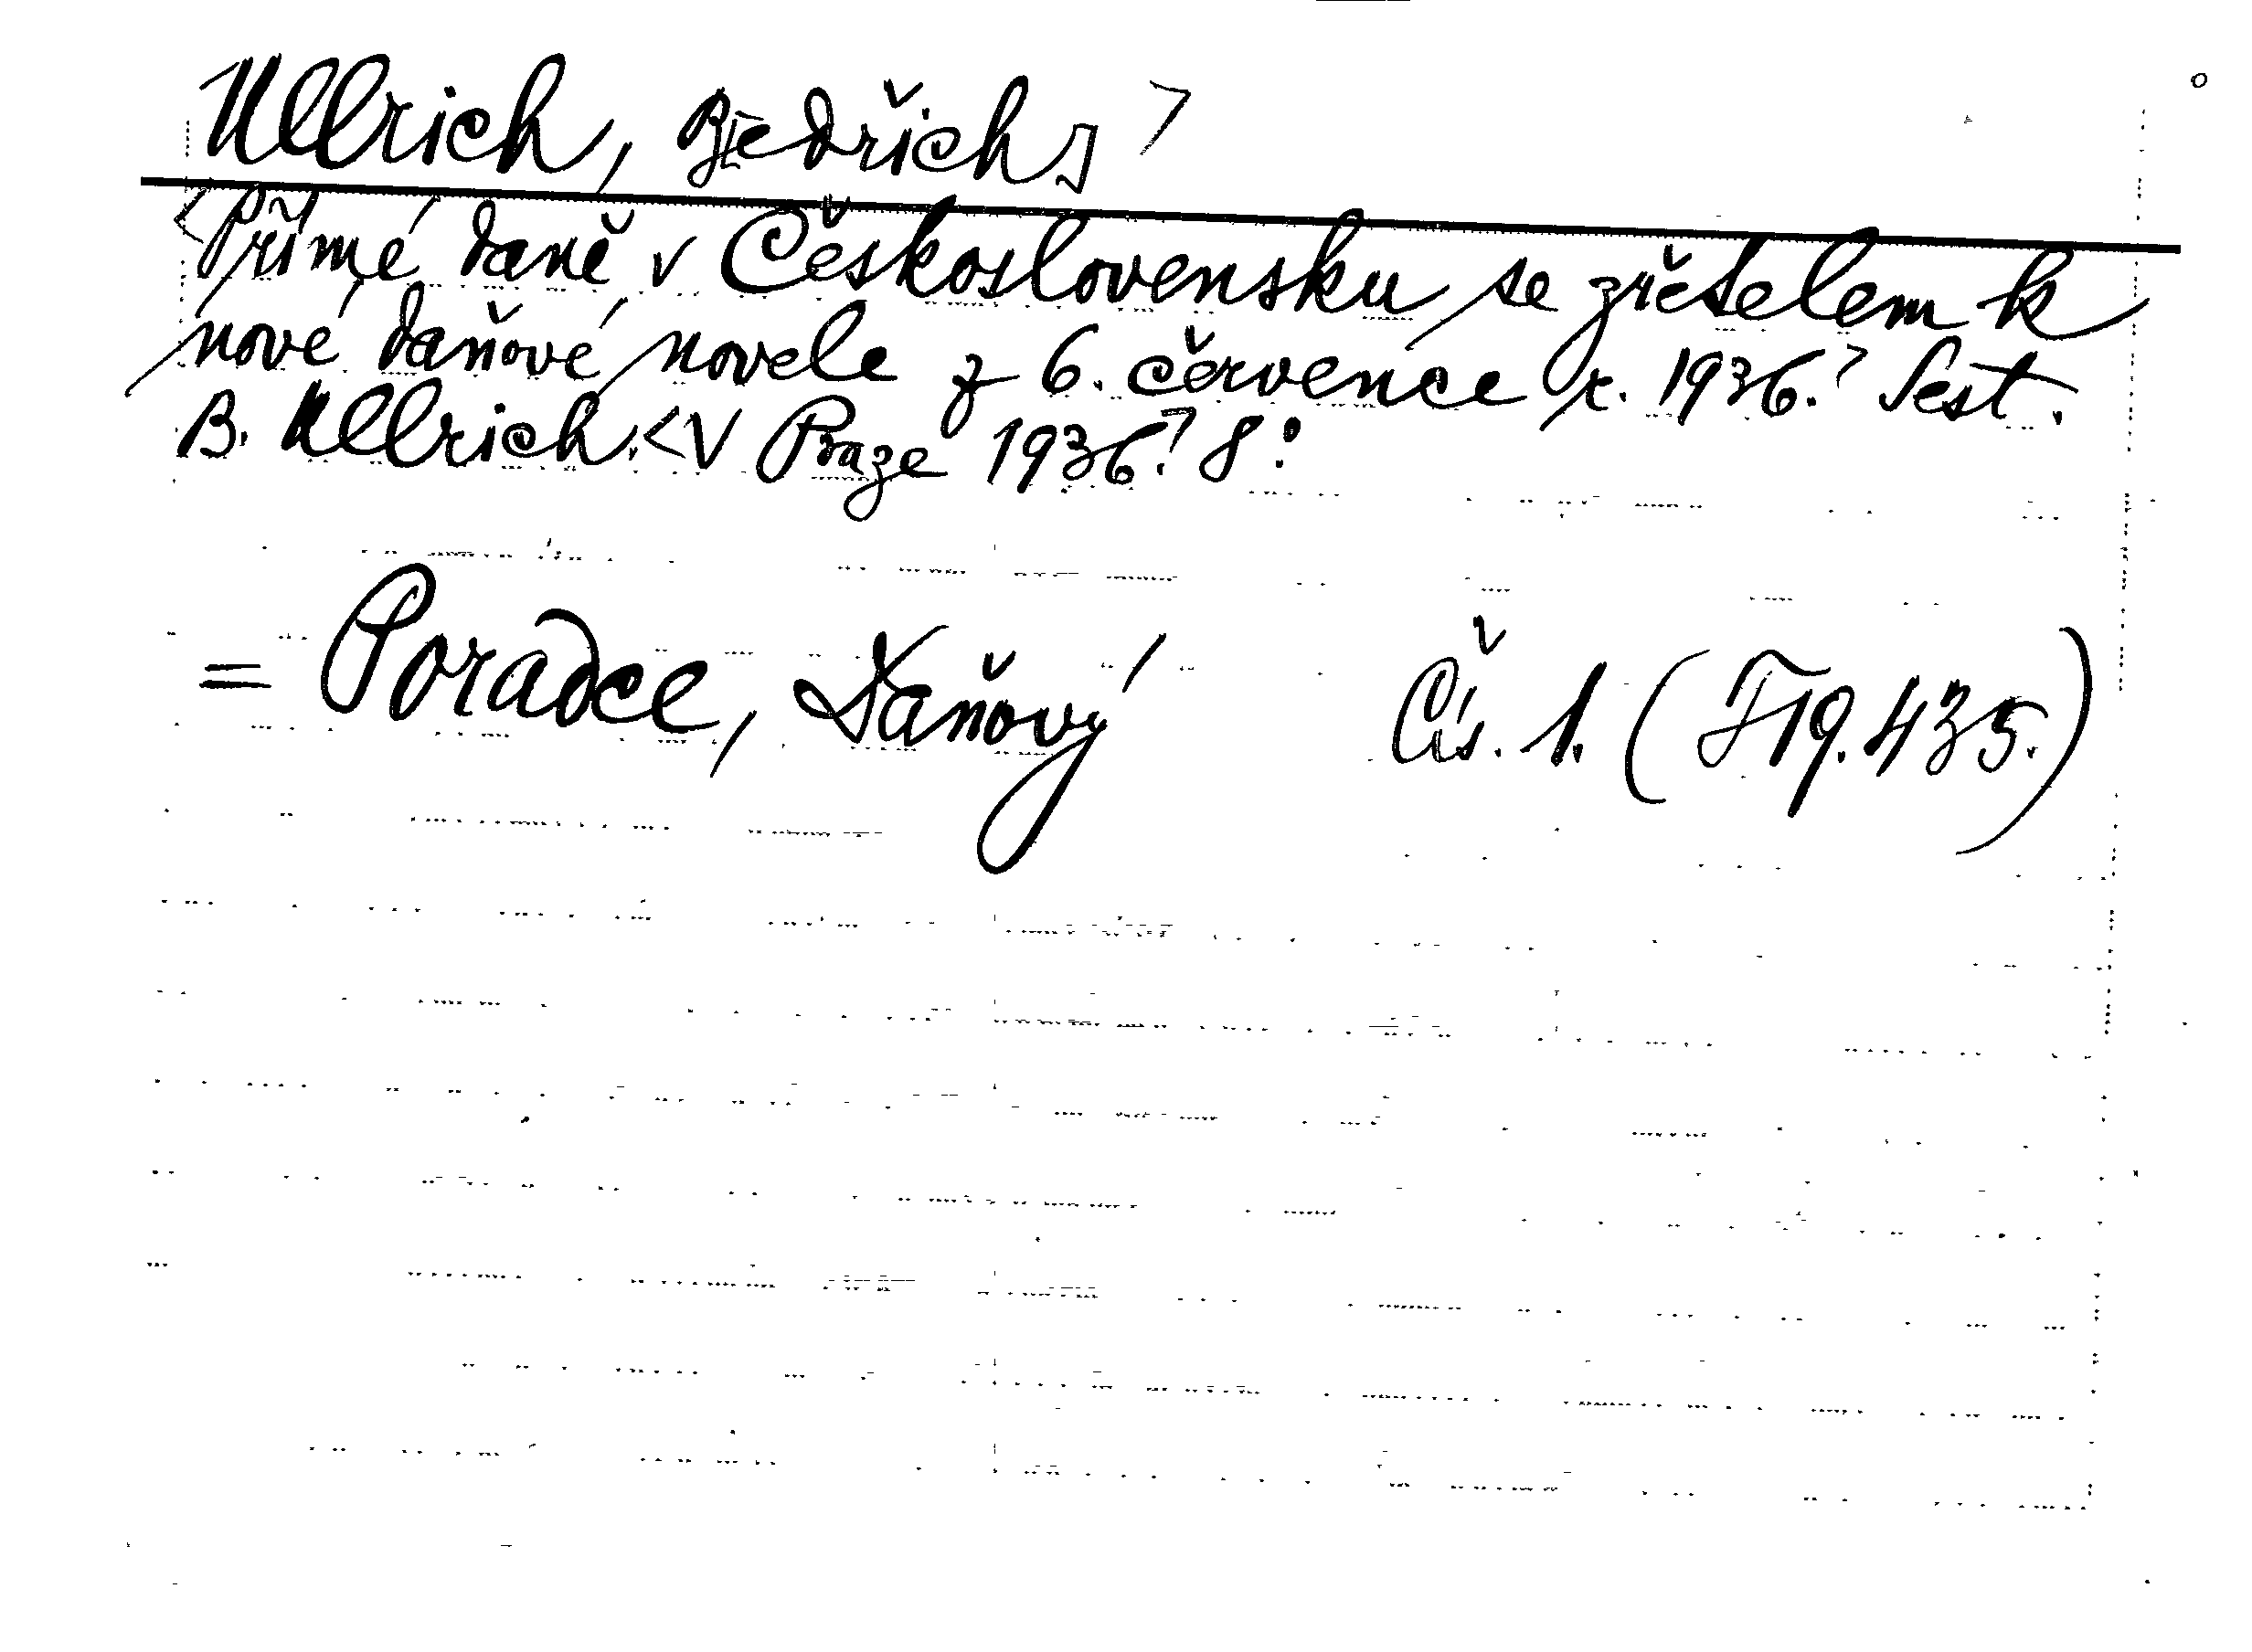 Ullrich, B[edřich] >
<Přímé daně v Československu se zřetelem k
nové daňové novele z 6. července r. 1936.> Sest.
B. Ullrich. <V Praze 1936.> 8°.
= Poradce, Daňový Čís. 1. (F 19.435.)